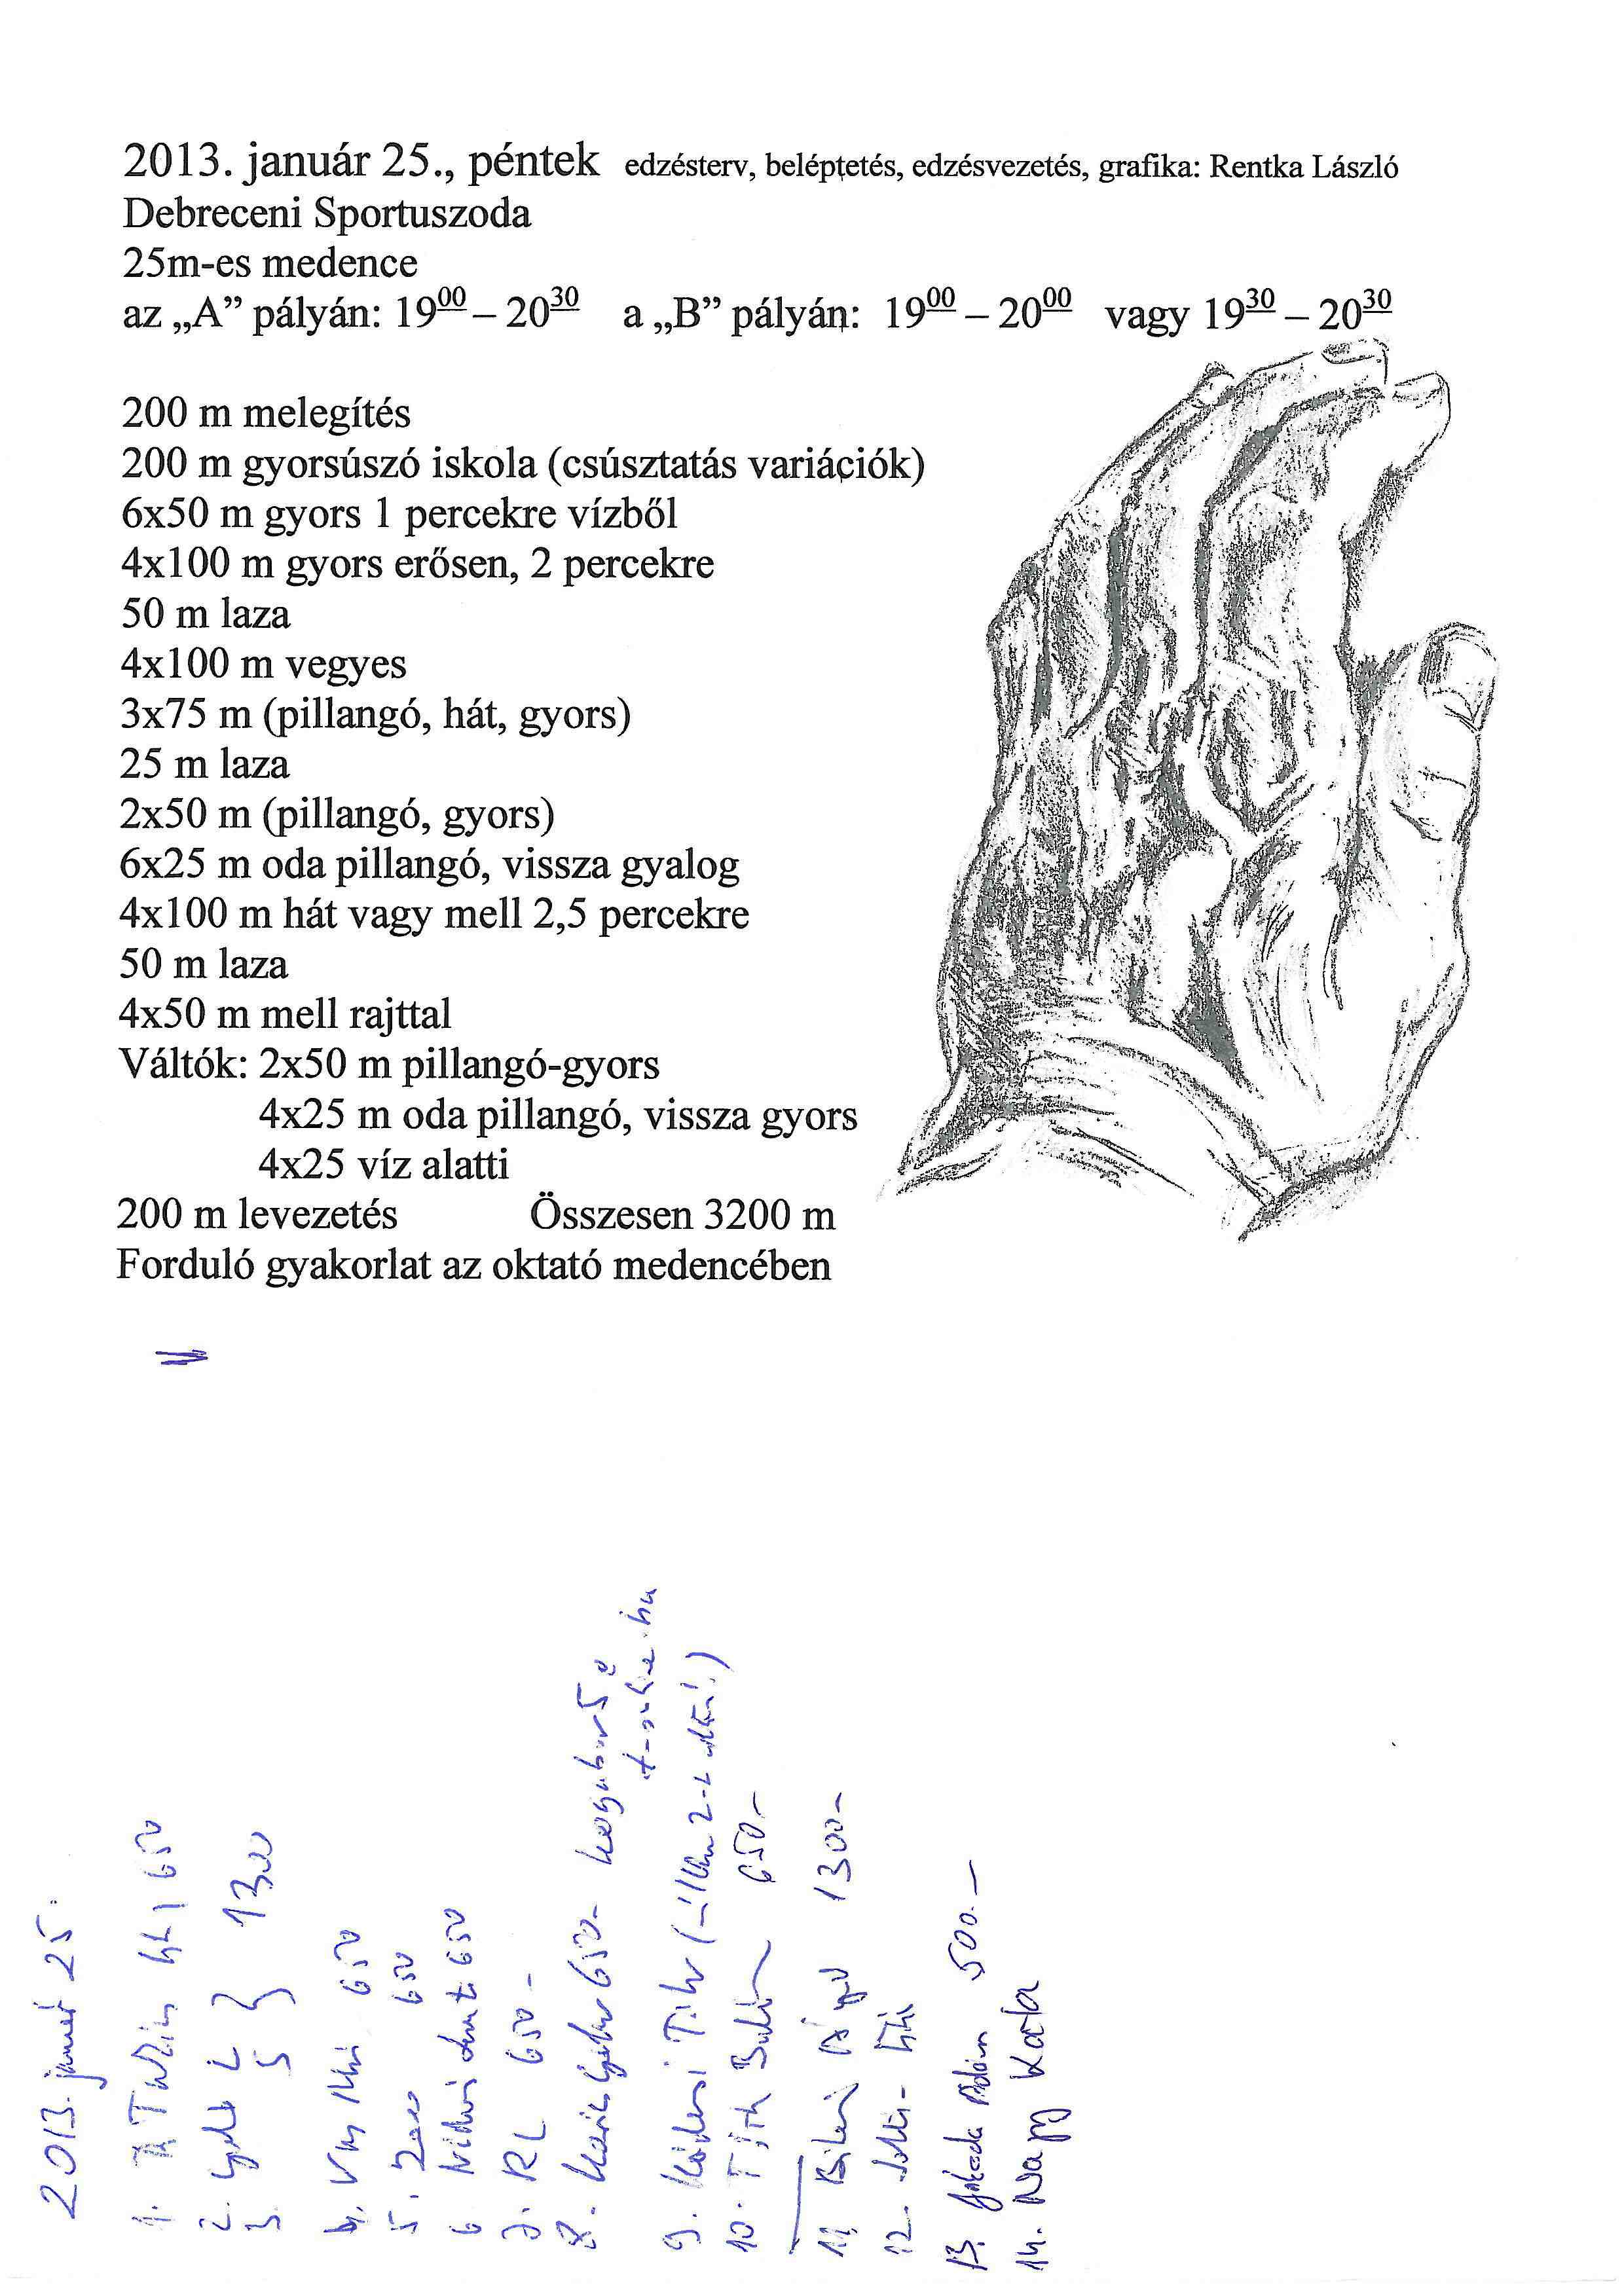 2013. január 25., péntek edzésterv, beléptetés, edzésvezetés, grafika: Rentka László
Debreceni Sportuszoda
25m-es medence
az „A” pályán: 19⁰⁰ – 20³⁰ a „B” pályán: 19⁰⁰ – 20⁰⁰ vagy 19³⁰ – 20³⁰
200 m melegítés
200 m gyorsúszó iskola (csúsztatás variációk)
6x50 m gyors 1 percekre vízből
4x100 m gyors erősen, 2 percekre
50 m laza
4x100 m vegyes
3x75 m (pillangó, hát, gyors)
25 m laza
2x50 m (pillangó, gyors)
6x25 m oda pillangó, vissza gyalog
4x100 m hát vagy mell 2,5 percekre
50 m laza
4x50 m mell rajttal
Váltók: 2x50 m pillangó-gyors
4x25 m oda pillangó, vissza gyors
4x25 víz alatti
200 m levezetés Összesen 3200 m
Forduló gyakorlat az oktató medencében
2013. január 25.
1. 650
2. 1300
3.
4. 650
5. 650
6 650
7. RL 650 -
8. 650-
9.
10. Tóth 650.-
11, 1300-
12.
13. Ádám 500.-
14. Nagy Kata